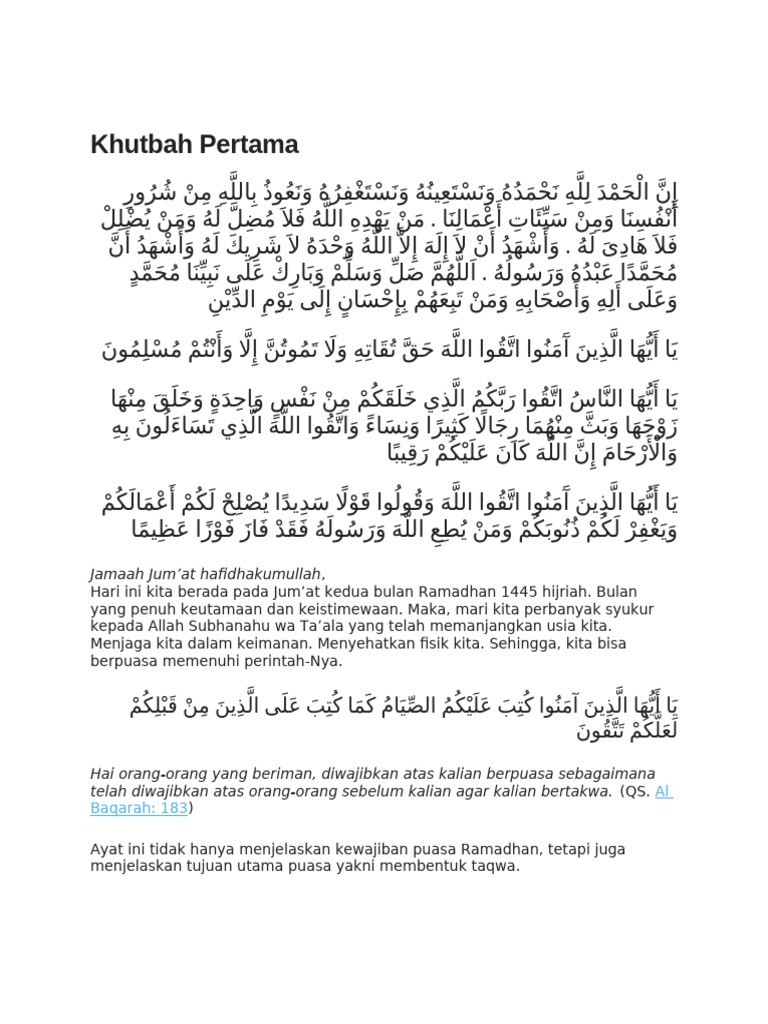 Khutbah Pertama
إِنَّ الْحَمْدَ لِلَّهِ نَحْمَدُهُ وَنَسْتَعِينُهُ وَنَسْتَغْفِرُهُ وَنَعُوذُ بِاللَّهِ مِنْ شُرُورِ
أَنْفُسِنَا وَمِنْ سَيِّئَاتِ أَعْمَالِنَا . مَنْ يَهْدِهِ اللَّهُ فَلاَ مُضِلَّ لَهُ وَمَنْ يُضْلِلْ
فَلاَ هَادِىَ لَهُ . وَأَشْهَدُ أَنْ لاَ إِلَهَ إِلاَّ اللَّهُ وَحْدَهُ لاَ شَرِيكَ لَهُ وَأَشْهَدُ أَنَّ
مُحَمَّدًا عَبْدُهُ وَرَسُولُهُ . اَللَّهُمَّ صَلِّ وَسَلِّمْ وَبَارِكْ عَلَى نَبِيِّنَا مُحَمَّدٍ
وَعَلَى أَلِهِ وَأَصْحَابِهِ وَمَنْ تَبِعَهُمْ بِإِحْسَانٍ إِلَى يَوْمِ الدِّيْنِ
يَا أَيُّهَا الَّذِينَ آَمَنُوا اتَّقُوا اللَّهَ حَقَّ تُقَاتِهِ وَلَا تَمُوتُنَّ إِلَّا وَأَنْتُمْ مُسْلِمُونَ
يَا أَيُّهَا النَّاسُ اتَّقُوا رَبَّكُمُ الَّذِي خَلَقَكُمْ مِنْ نَفْسٍ وَاحِدَةٍ وَخَلَقَ مِنْهَا
زَوْجَهَا وَبَثَّ مِنْهُمَا رِجَالًا كَثِيرًا وَنِسَاءً وَاتَّقُوا اللَّهَ الَّذِي تَسَاءَلُونَ بِهِ
وَالْأَرْحَامَ إِنَّ اللَّهَ كَانَ عَلَيْكُمْ رَقِيبًا
يَا أَيُّهَا الَّذِينَ آَمَنُوا اتَّقُوا اللَّهَ وَقُولُوا قَوْلًا سَدِيدًا يُصْلِحْ لَكُمْ أَعْمَالَكُمْ
وَيَغْفِرْ لَكُمْ ذُنُوبَكُمْ وَمَنْ يُطِعِ اللَّهَ وَرَسُولَهُ فَقَدْ فَازَ فَوْزًا عَظِيمًا
Jamaah Jum’at hafidhakumullah,
Hari ini kita berada pada Jum’at kedua bulan Ramadhan 1445 hijriah. Bulan
yang penuh keutamaan dan keistimewaan. Maka, mari kita perbanyak syukur
kepada Allah Subhanahu wa Ta’ala yang telah memanjangkan usia kita.
Menjaga kita dalam keimanan. Menyehatkan fisik kita. Sehingga, kita bisa
berpuasa memenuhi perintah-Nya.
يَا أَيُّهَا الَّذِينَ آمَنُوا كُتِبَ عَلَيْكُمُ الصِّيَامُ كَمَا كُتِبَ عَلَى الَّذِينَ مِنْ قَبْلِكُمْ
لَعَلَّكُمْ تَتَّقُونَ
Hai orang-orang yang beriman, diwajibkan atas kalian berpuasa sebagaimana
telah diwajibkan atas orang-orang sebelum kalian agar kalian bertakwa. (QS. Al
Baqarah: 183)
Ayat ini tidak hanya menjelaskan kewajiban puasa Ramadhan, tetapi juga
menjelaskan tujuan utama puasa yakni membentuk taqwa.